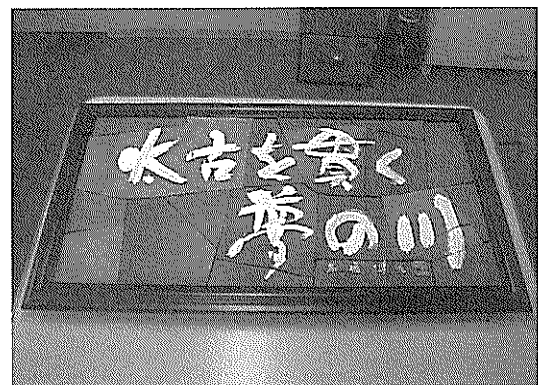 太古を貫く
夢の川